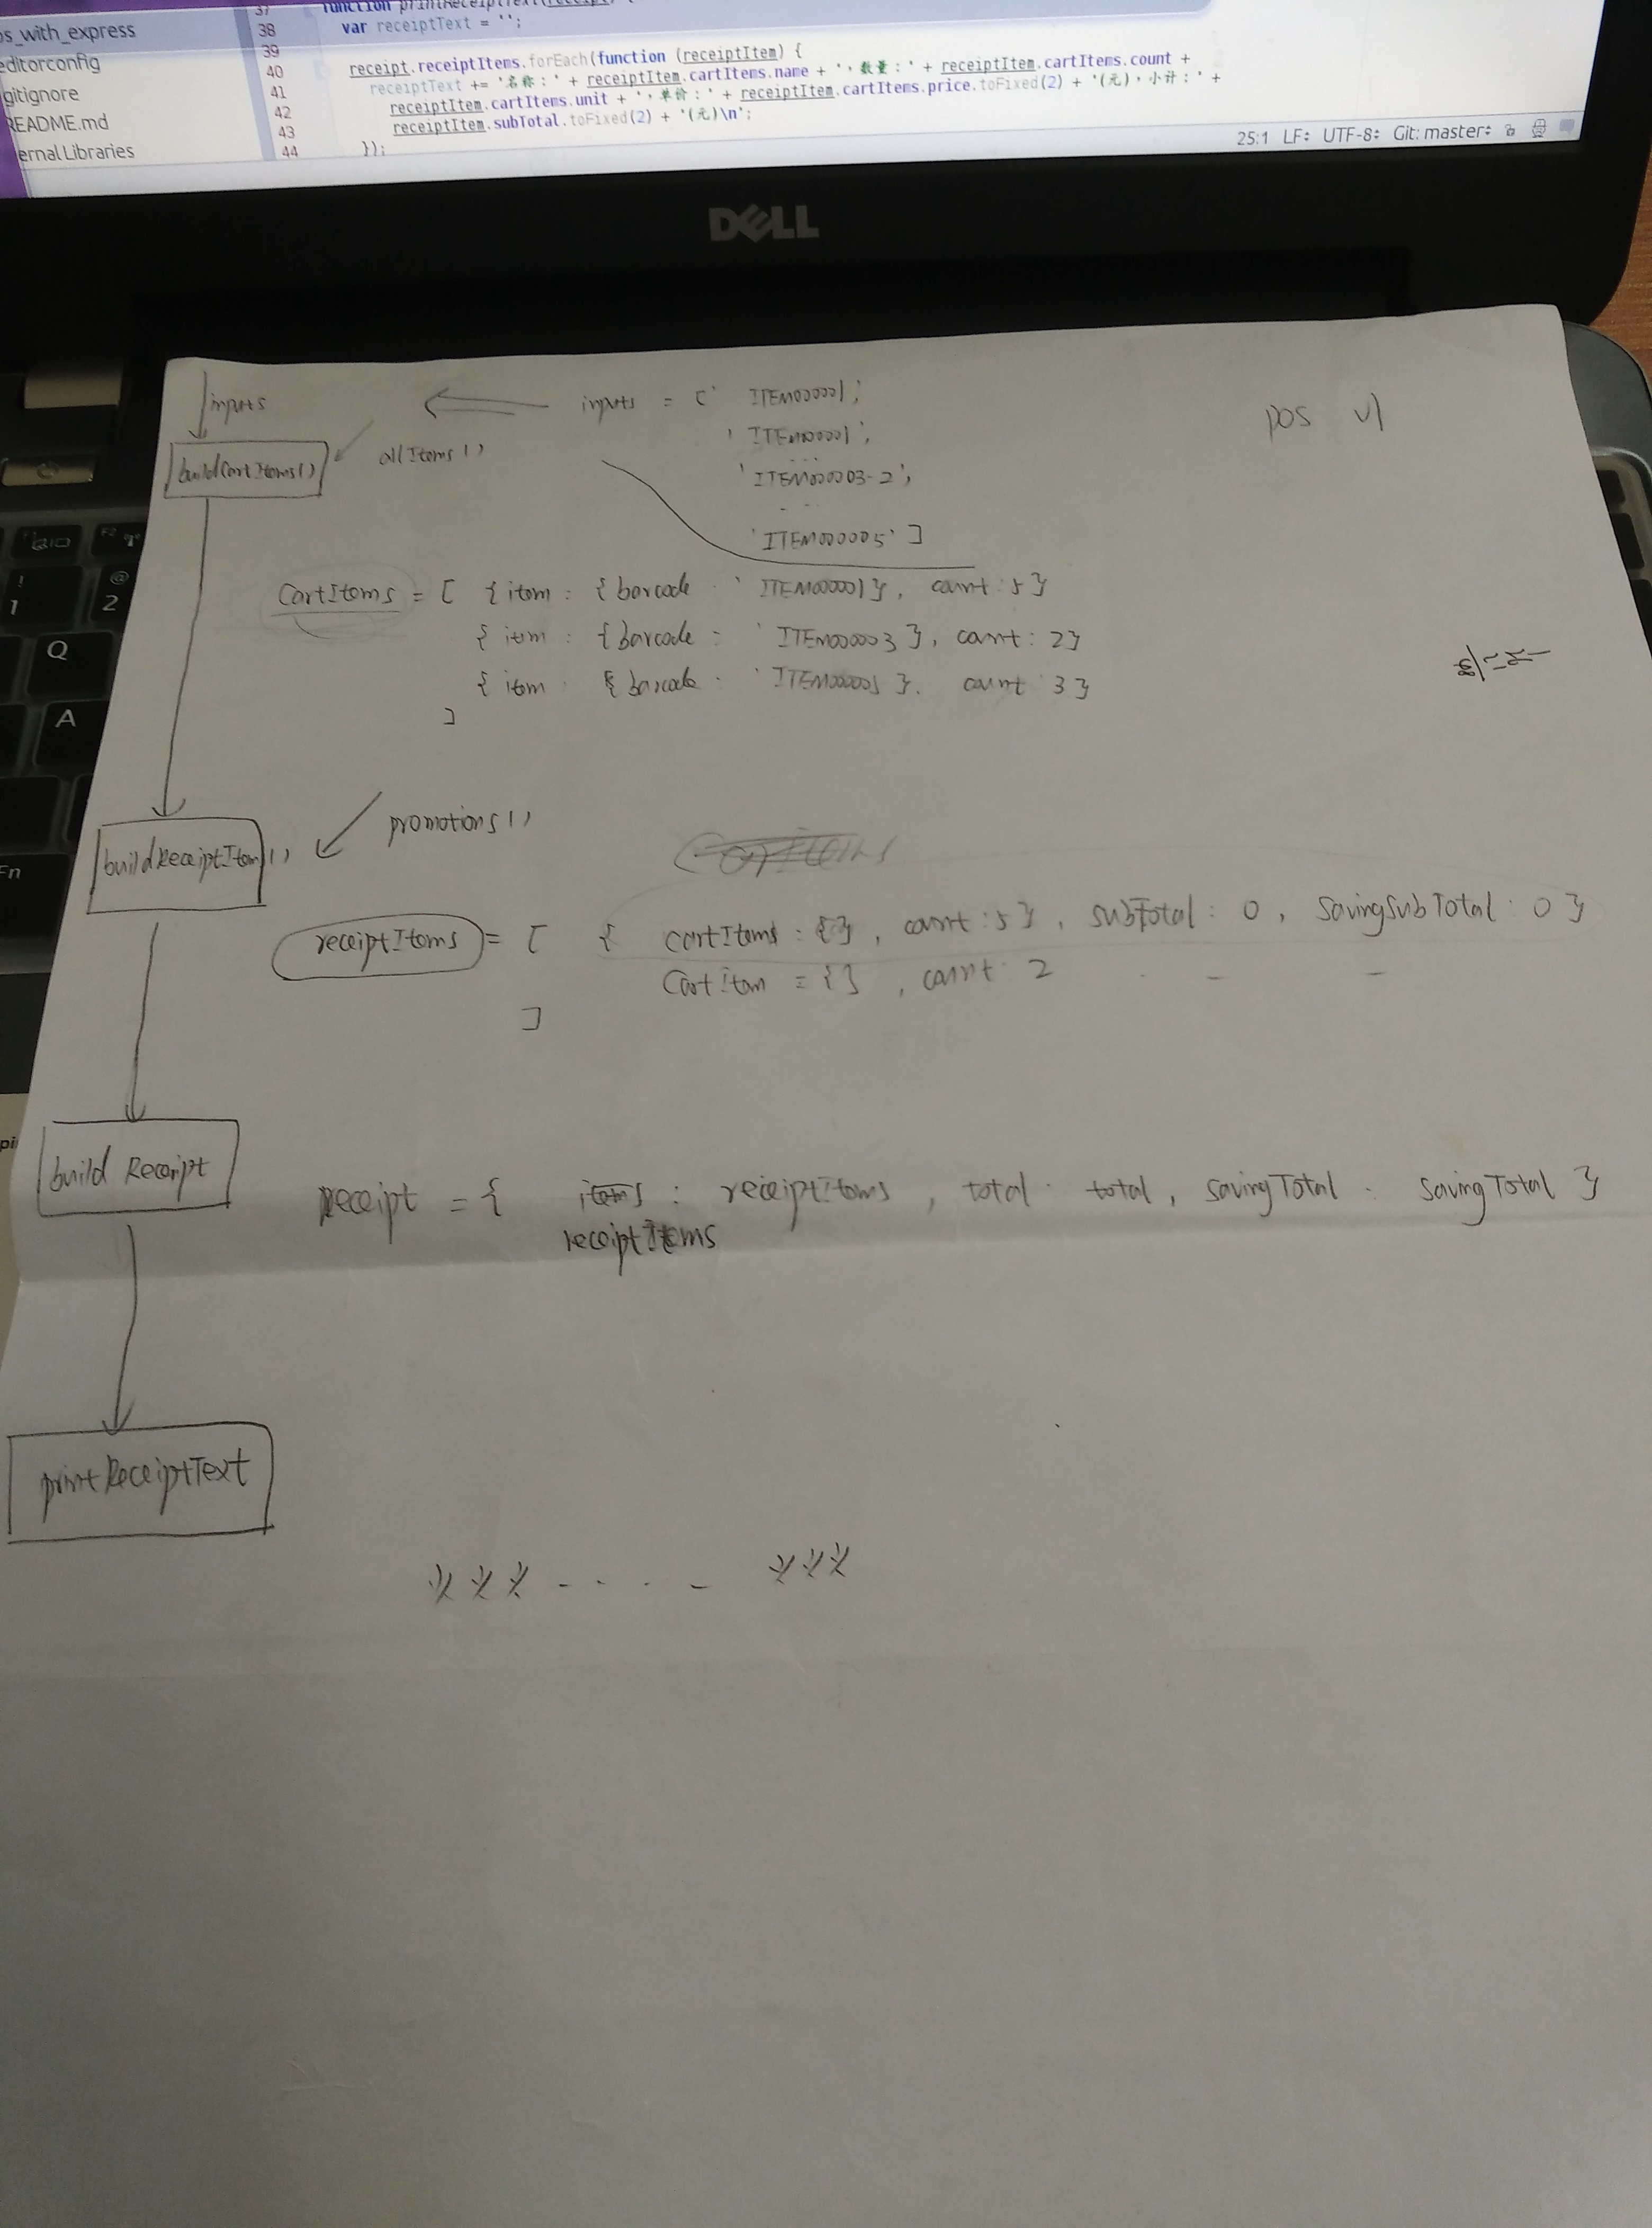 os_with_express
editorconfig
gitignore
README.md
ernal Libraries
37 function printReceiptText(receipt) {
38 var receiptText = '';
39
40 receipt.receiptItems.forEach(function (receiptItem) {
41 receiptText += '名称：' + receiptItem.cartItems.name + '，数量：' + receiptItem.cartItems.count +
42 receiptItem.cartItems.unit + '，单价：' + receiptItem.cartItems.price.toFixed(2) + '(元)，小计：' +
43 receiptItem.subTotal.toFixed(2) + '(元)\n';
44 });
25:1 LF: UTF-8: Git: master:
DELL
inputs
inputs = [' ITEM000001',
pos v1
buildCartItems()
allItems()
' ITEM000001',
'ITEM000003-2',
'ITEM000005' ]
CartItems = [ {item : {barcode : ' ITEM000001}, count : 5}
{ item : {barcode : ' ITEM000003 }, count : 2}
{ item {barcode : ' ITEM000005 }. count 3}
]
buildReceiptItem()
promotions()
receiptItems = [ { cartItems : {}, count : 5 }, subTotal : 0, SavingSubTotal : 0 }
CartItem = {} , count 2 - -
]
build Receipt
receipt = { items : receiptItems , total : total, SavingTotal : SavingTotal }
receiptItems
printReceiptText
*** - - - - ***
Q
A
Fn
! 1
@ 2
F2